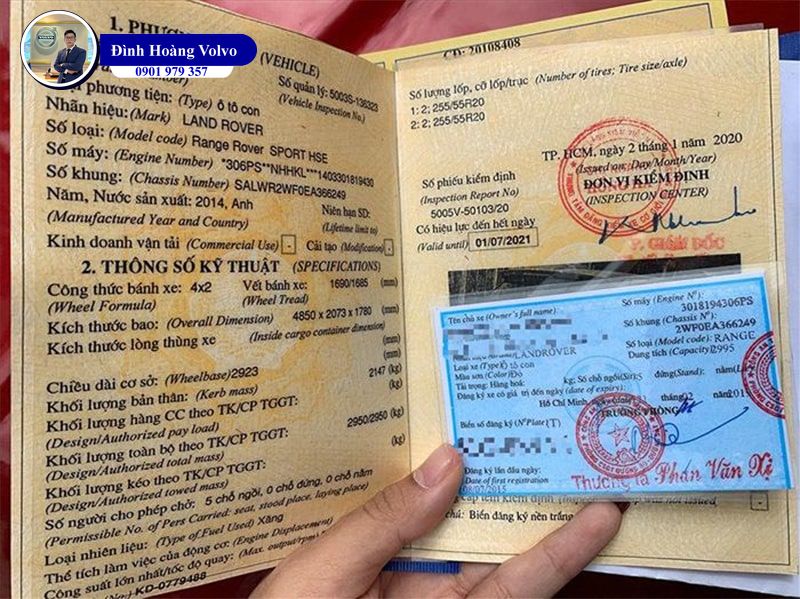 Đình Hoàng Volvo
0901 979 357
1. PHƯƠNG (VEHICLE)
Số quản lý: 5003S-136323
(Vehicle Inspection No.)
phương tiện: (Type) ô tô con
Nhãn hiệu: (Mark) LAND ROVER
Số loại: (Model code) Range Rover SPORT HSE
Số máy: (Engine Number) *306PS**NHHKL***1403301819430
Số khung: (Chassis Number) SALWR2WF0EA366249
Năm, Nước sản xuất: 2014, Anh Niên hạn SD:
(Manufactured Year and Country) (Lifetime limit to)
Kinh doanh vận tải (Commercial Use) - Cải tạo (Modification) -
2. THÔNG SỐ KỸ THUẬT (SPECIFICATIONS)
Công thức bánh xe: 4x2 Vết bánh xe: 1690/1685 (mm)
(Wheel Formula) (Wheel Tread)
Kích thước bao: (Overall Dimension) 4850 x 2073 x 1780 (mm)
Kích thước lòng thùng xe (Inside cargo container dimension)
(mm)
Chiều dài cơ sở: (Wheelbase) 2923 (mm)
Khối lượng bản thân: (Kerb mass) 2147 (kg)
Khối lượng hàng CC theo TK/CP TGGT: (kg)
(Design/Authorized pay load)
Khối lượng toàn bộ theo TK/CP TGGT: 2950/2950 (kg)
(Design/Authorized total mass)
Khối lượng kéo theo TK/CP TGGT: (kg)
(Design/Authorized towed mass)
Số người cho phép chở: 5 chỗ ngồi, 0 chỗ đứng, 0 chỗ nằm
(Permissible No. of Pers Carried: seat, stood place, laying place)
Loại nhiên liệu: (Type of Fuel Used) Xăng
Thể tích làm việc của động cơ: (Engine Displacement)
Công suất lớn nhất/tốc độ quay: (Max. output/rpm)
KD-0779488
CD: 20108408
Số lượng lốp, cỡ lốp/trục (Number of tires; Tire size/axle)
1: 2; 255/55R20
2: 2; 255/55R20
TP. HCM, ngày 2 tháng 1 năm 2020
(Issued on: Day/Month/Year)
Số phiếu kiểm định ĐƠN VỊ KIỂM ĐỊNH
(Inspection Report No) (INSPECTION CENTER)
5005V-50103/20
Có hiệu lực đến hết ngày
(Valid until) 01/07/2021
P. GIÁM ĐỐC
Tên chủ xe (Owner's full name):
Số máy (Engine Nº): 3018194306PS
Số khung (Chassis Nº): 2WF0EA366249
LANDROVER Số loại (Model code): RANGE
Loại xe (Type) Ô tô con Dung tích (Capacity): 2995
Màu sơn (Color) Đỏ
Tải trọng: Hàng hoá: kg; Số chỗ ngồi (Sit): 5 đứng (Stand): nằm
Đăng ký xe có giá trị đến ngày (date of expiry):
Hồ Chí Minh tháng 02 năm 201
TRƯỞNG PHÒNG
Biển số đăng ký (Nº Plate)
Đăng ký lần đầu ngày:
Date of first registration
Thượng tá Phán Văn Xệ
Biển đăng ký nền trắng